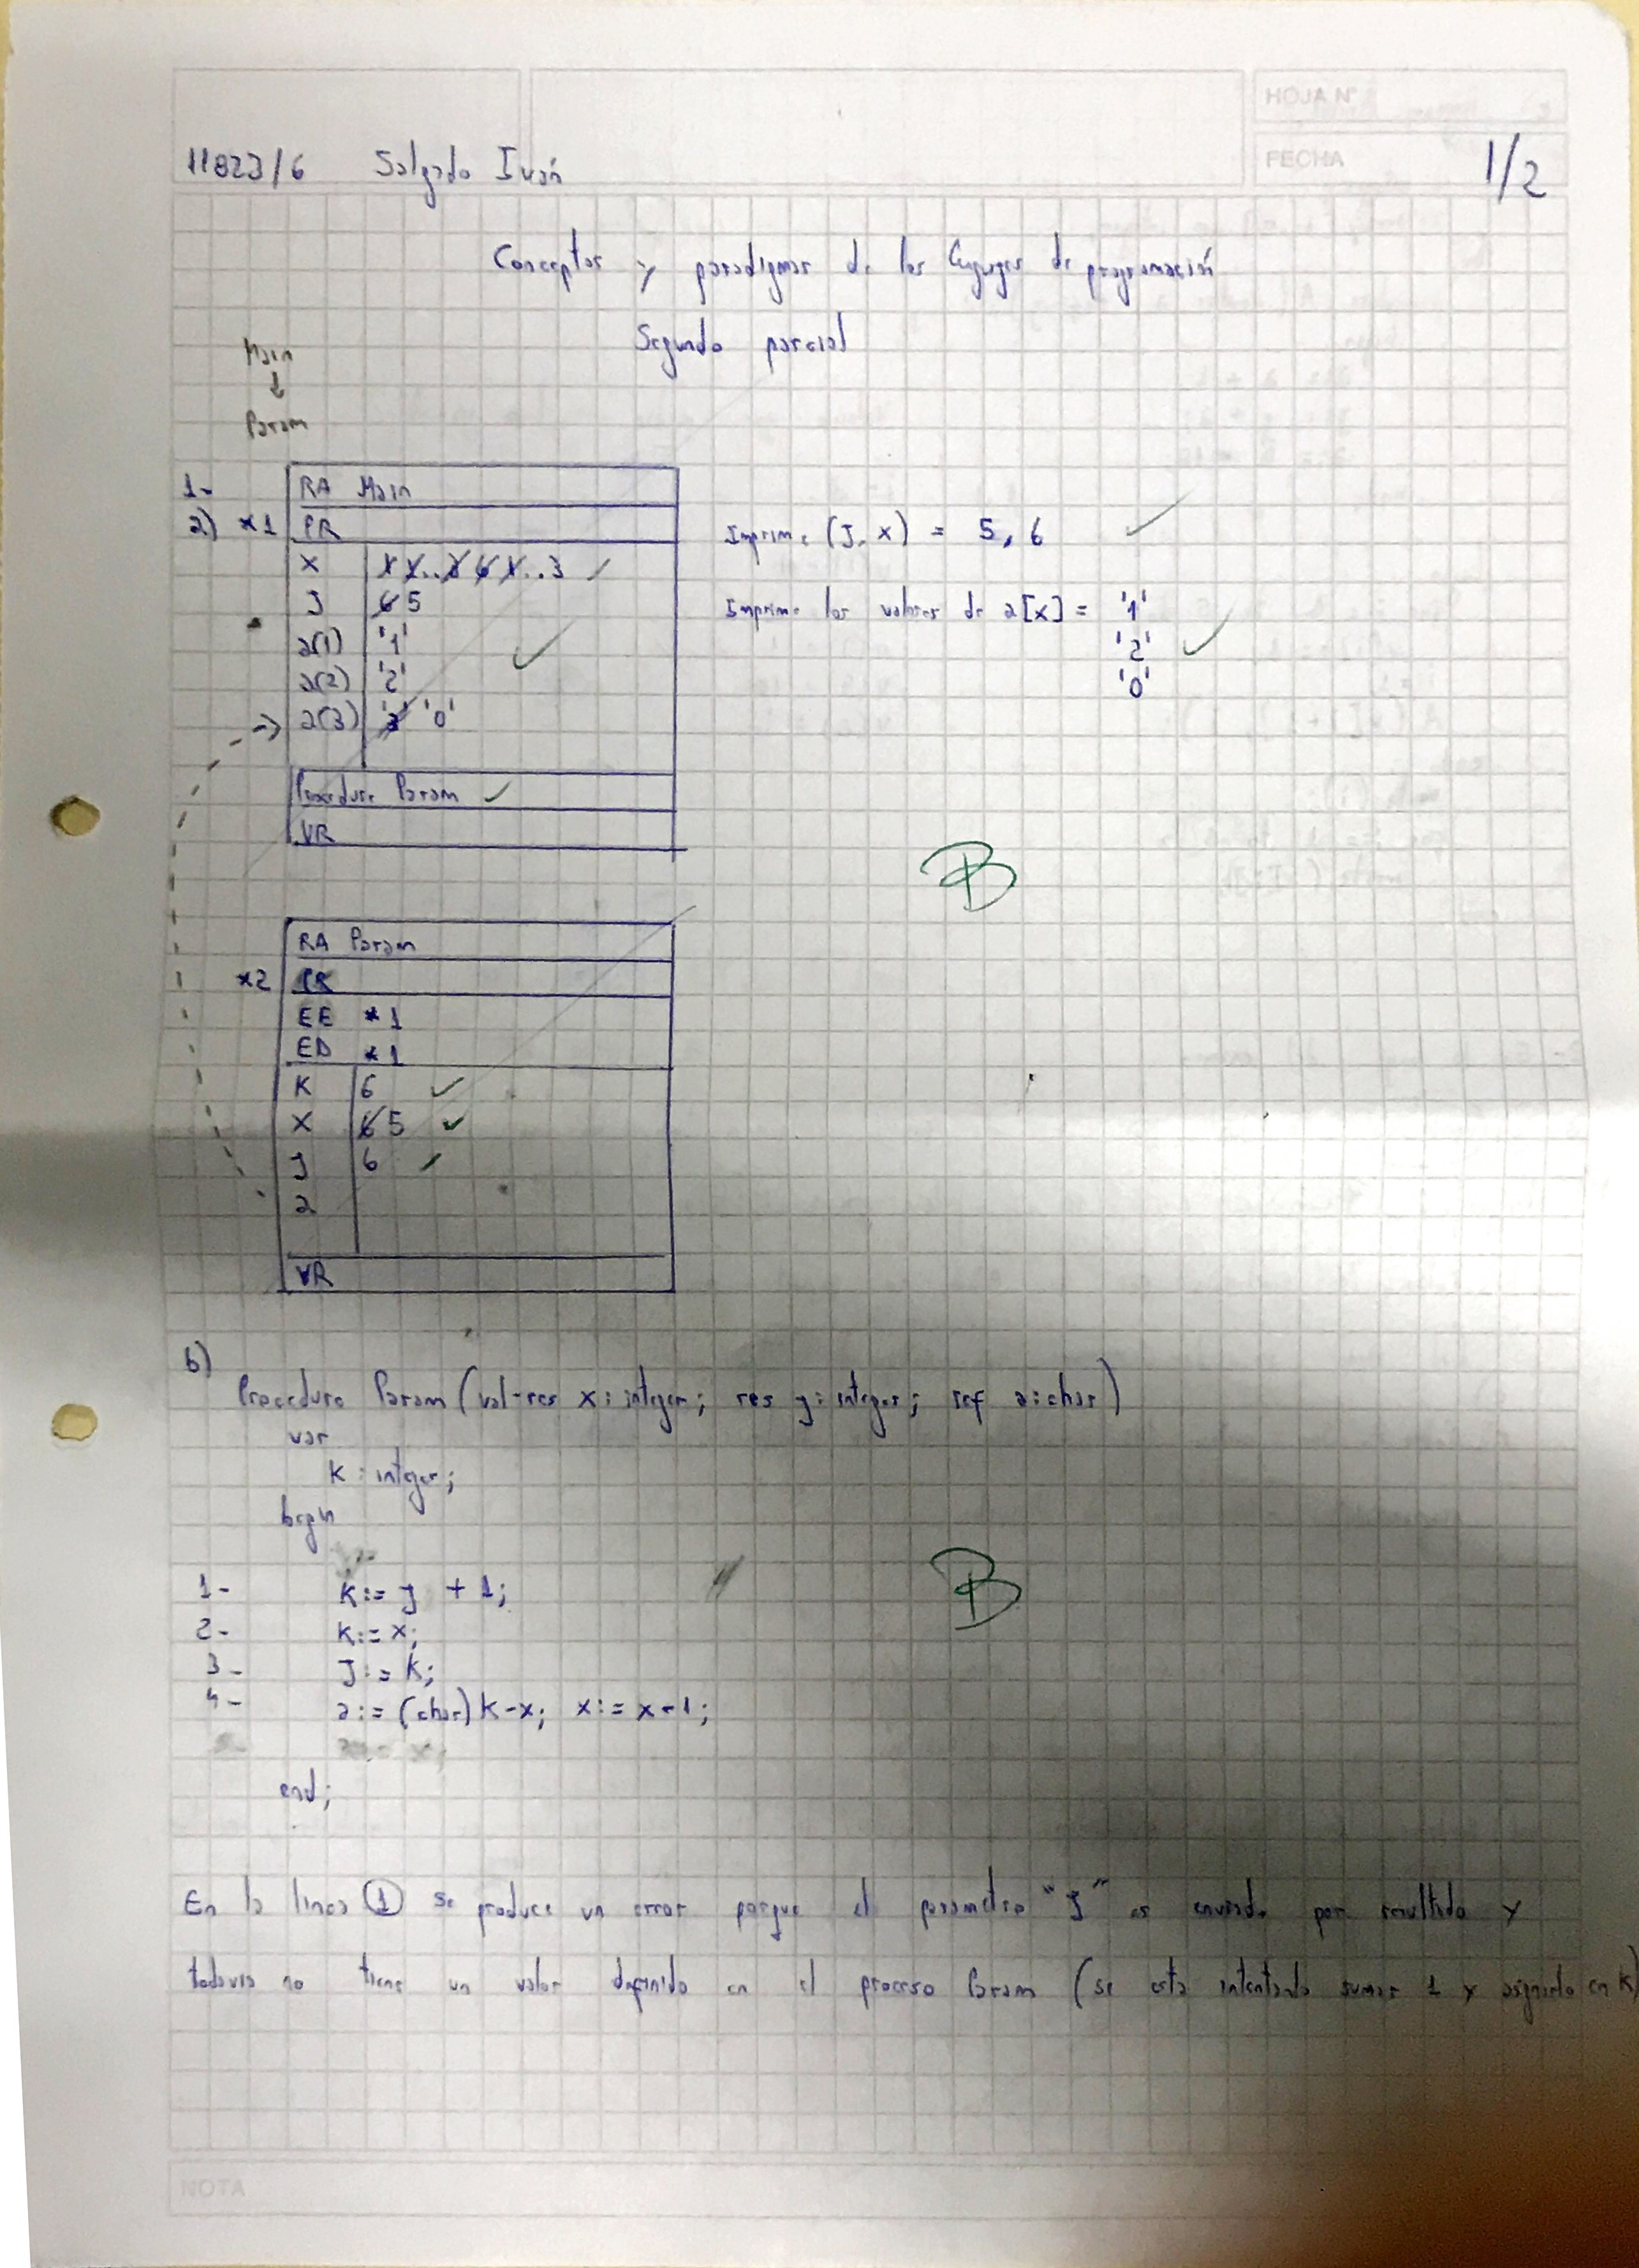 HOJA N°
FECHA
1/2
11823/6 Salgado Iván
Conceptos y paradigmas de los lenguajes de programación
Segundo parcial
Main
↓
Param
1-
a) *1
RA Main
PR
X 1 1..3 6 1..3
J 6 5
a(1) '1'
a(2) '2'
a(3) '3' '0'
Procedure Param
VR
Imprime (J, x) = 5, 6
Imprime los valores de a[x] = '1'
'2'
'0'
B
RA Param
*2 PR
EE *1
ED *1
K 6
X 6 5
J 6
a
VR
b)
Procedure Param (val-res x: integer; res y: integer; ref a: char)
var
K: integer;
begin
1- K:= y + 1;
2- K:= x;
3- J:= K;
4- a:= (char) K-x; x:= x-1;
end;
B
En la linea ① se produce un error porque el parametro "J" es enviado por resultado y
todavia no tiene un valor definido en el proceso Param (se esta intentando sumar 1 y asignarlo en K)
NOTA